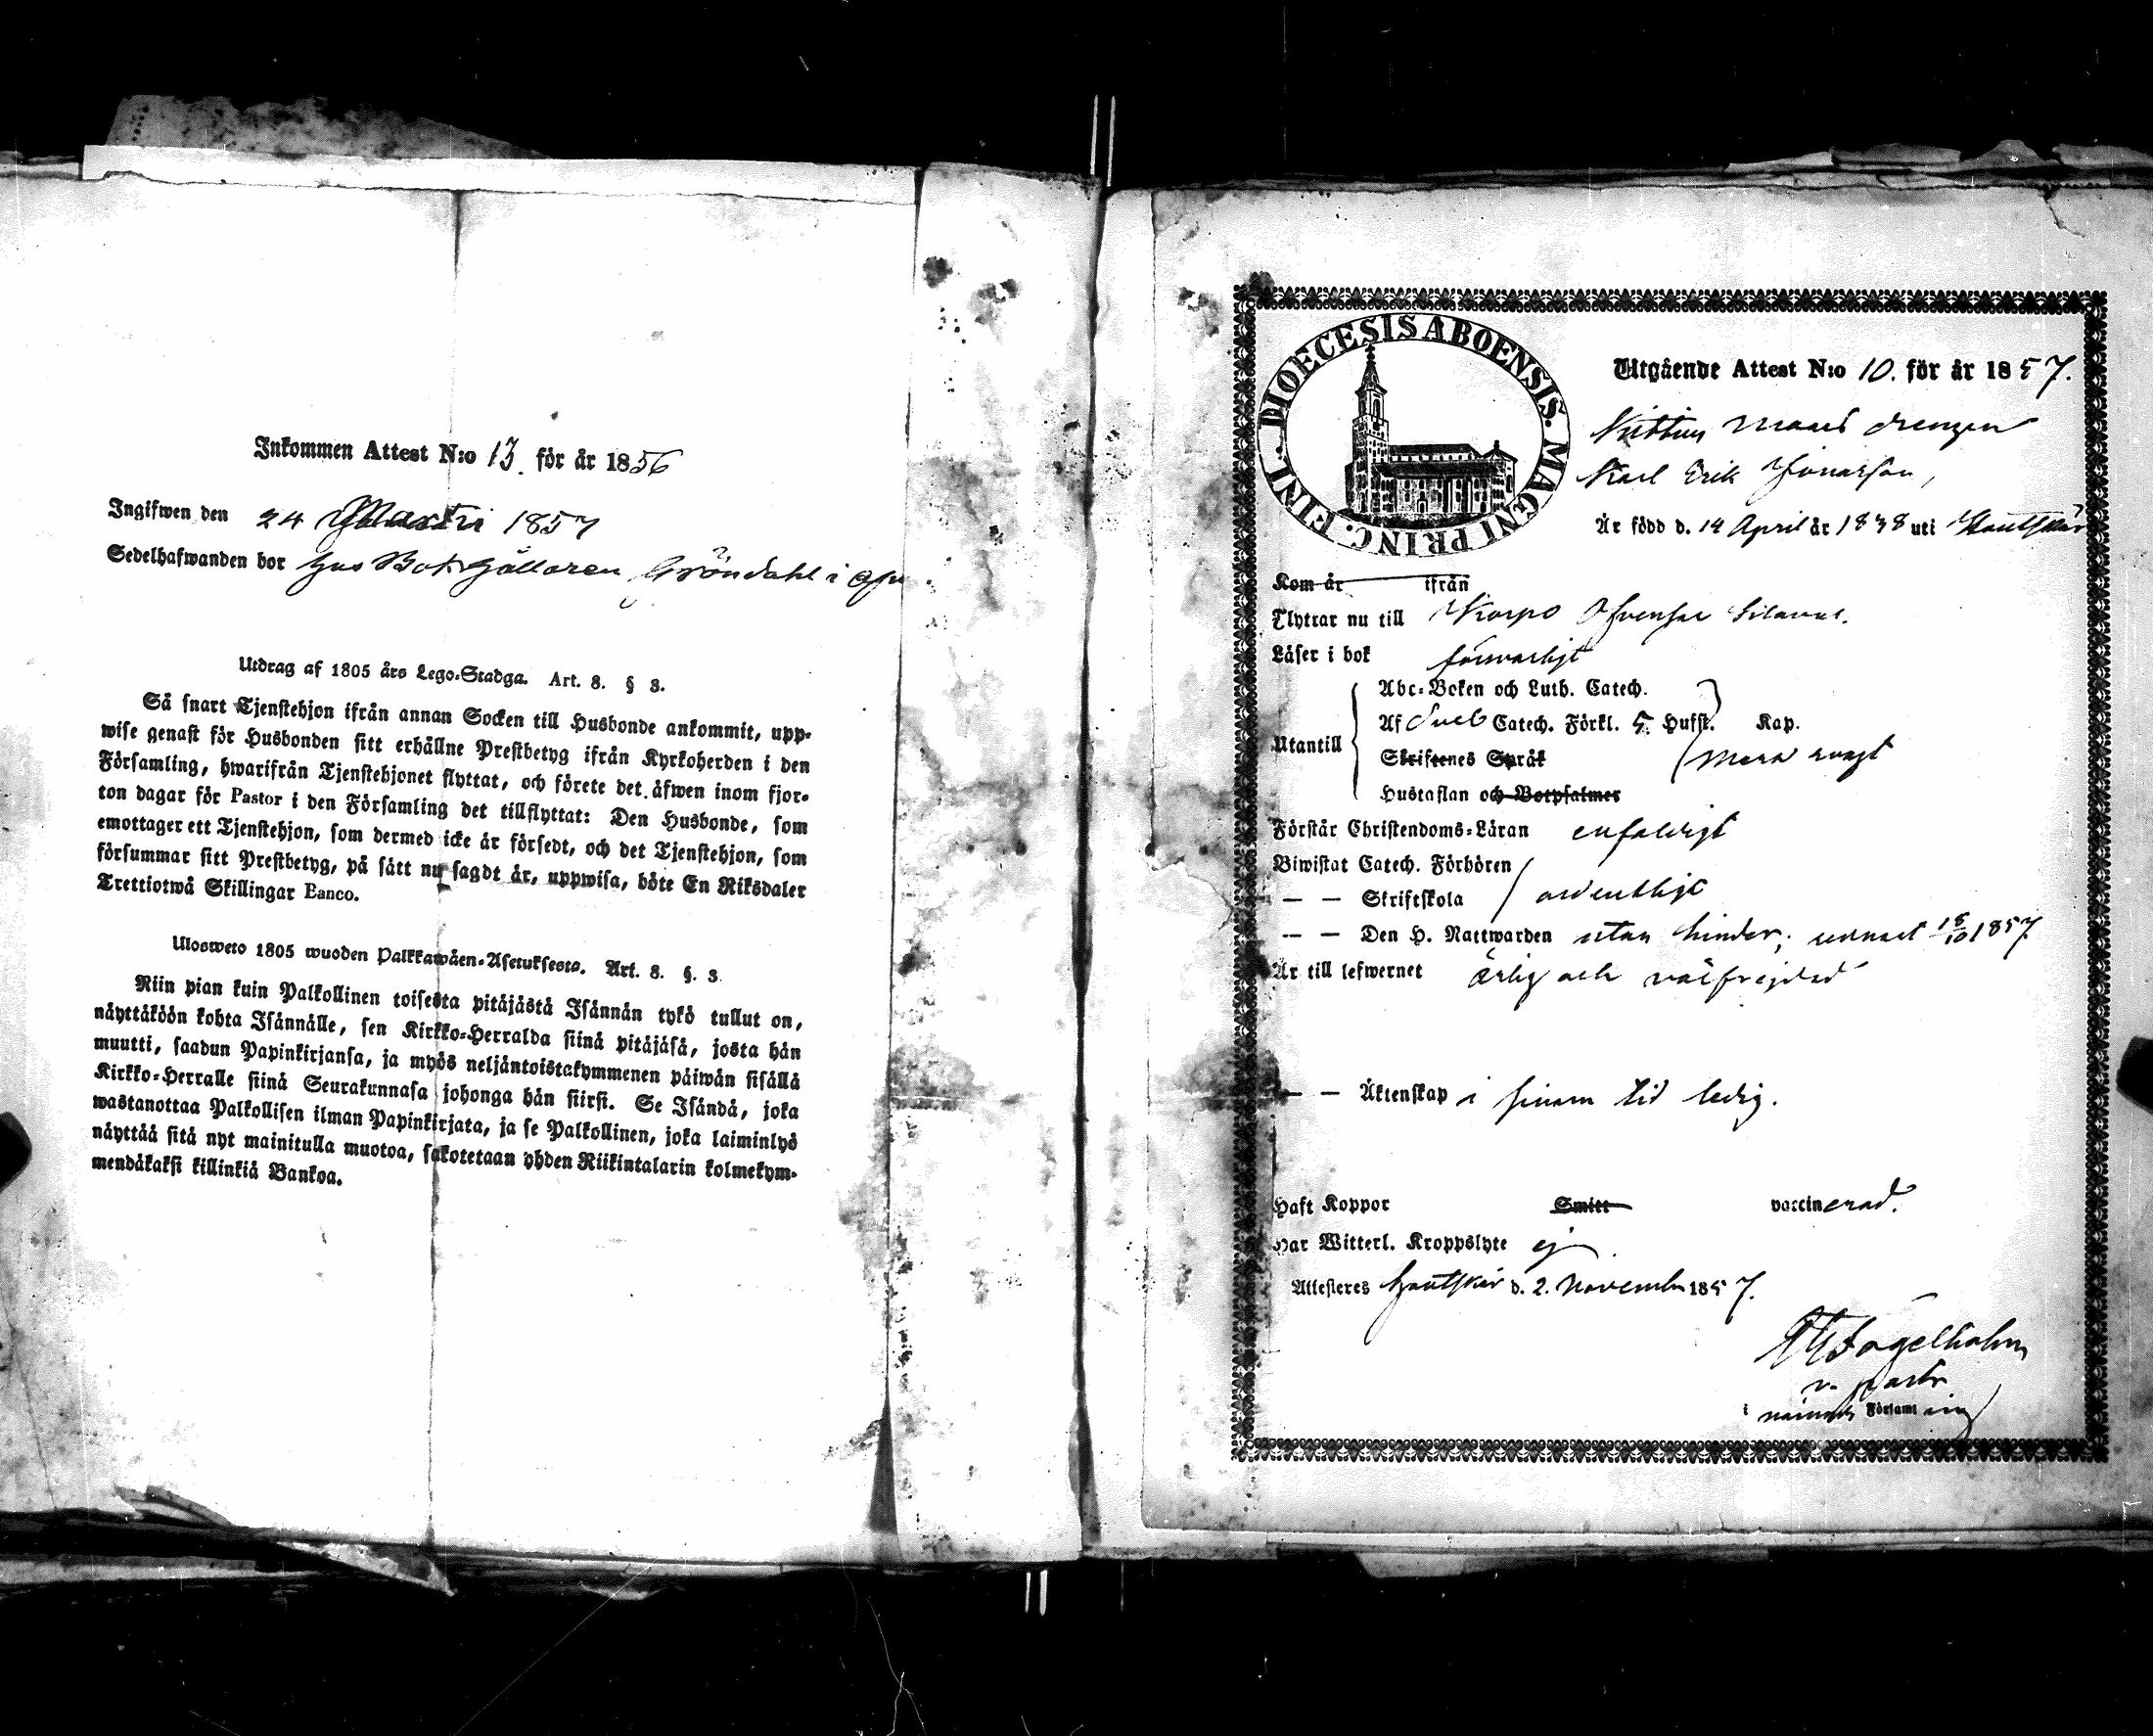 Inkommen Attest N:o 13. för år 1856
Ingifwen den 24 1857
Sedelhafwanden bor hos Gröndahl i
Utdrag af 1805 års Lego-Stadga. Art. 8. § 3.
Så snart Tjenstehjon ifrån annan Socken till Husbonde ankommit, upp-
wise genast för Husbonden sitt erhållne Prestbetyg ifrån Kyrkoherden i den
Församling, hwarifrån Tjenstehjonet flyttat, och förete det äfwen inom fjor-
ton dagar för Pastor i den Församling det tillflyttat: Den Husbonde, som
emottager ett Tjenstehjon, som dermed icke är försedt, och det Tjenstehjon, som
försummar sitt Prestbetyg, på sätt nu sagdt är, uppwisa, böte En Riksdaler
Trettiotwå Skillingar Banco.
Ulosweto 1805 wuoden Palkkawäen-Asetuksesta. Art. 8. §. 3
Niin pian kuin Palkollinen toisesta pitäjästä Isännän tykö tullut on,
näyttäköön kohta Isännälle, sen Kirkko-Herralda siinä pitäjäsä, josta hän
muutti, saadun Papinkirjansa, ja myös neljäntoistakymmenen päiwän sisällä
Kirkko-Herralle siinä Seurakunnasa johonga hän siirsi. Se Isändä, joka
wastanottaa Palkollisen ilman Papinkirjata, ja se Palkollinen, joka laiminlyö
näyttää sitä nyt mainitulla muotoa, sakotetaan yhden Riikintalarin kolmekym-
mendäkaksi killinkiä Bankoa.
DIOECESIS ABOENSIS. MAGNI PRINC. FINL.
Utgående Attest N:o 10. för år 1857.
drengen
Karl Erik Jonasson,
Är född d. 14 April år 1838 uti Houtskär
Kom år ifrån
Flyttar nu till Korpo
Läser i bok försvarligt
Abc-Boken och Luth. Catech.
Af Sveb Catech. Förkl. 5 Hufst. Kap.
Utantill
Skriftenes Språk svagt
Hustaflan och Botpsalmer
Förstår Christendoms-Läran enfaldigt
Biwistat Catech. Förhören
— — Skriftskola ordentligt
— — Den H. Nattwarden utan hinder; senast 18/10 1857
Är till lefwernet ärlig och välfrejdad
— — Äktenskap i sinom tid ledig.
Haft Koppor Smitt vaccinerad.
Har Witterl. Kroppslyte ej.
Attesteras Houtskär d. 2. November 1857.
Fagelholm
v. pastor
i nämnde Församling